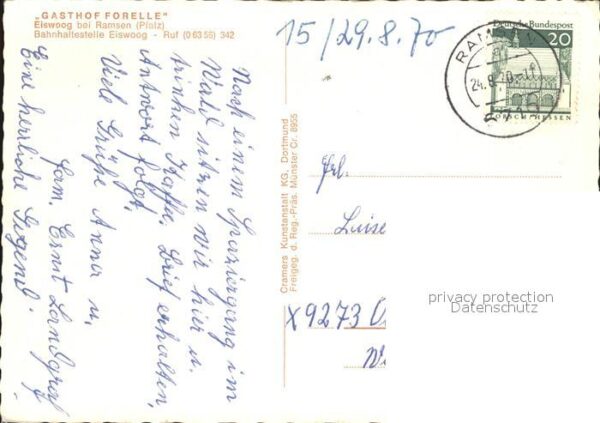 „GASTHOF FORELLE"
Eiswoog bei Ramsen (Pfalz)
Bahnhaltestelle Eiswoog - Ruf (0 63 55) 342
15/29.8.70
Nach einem Spaziergang im
Wald sitzen wir hier u.
trinken Kaffee. Brief erhalten,
Antwort folgt.
Viele Grüße Anna u.
Fam. Ernst Landgraf
Eine herrliche Gegend.
Cramers Kunstanstalt KG, Dortmund
Freigeg. d. Reg.-Präs. Münster Cr. 8955
Deutsche Bundespost
20
LORSCH HESSEN
24.8.70
Frl.
Luise
X9273
privacy protection
Datenschutz